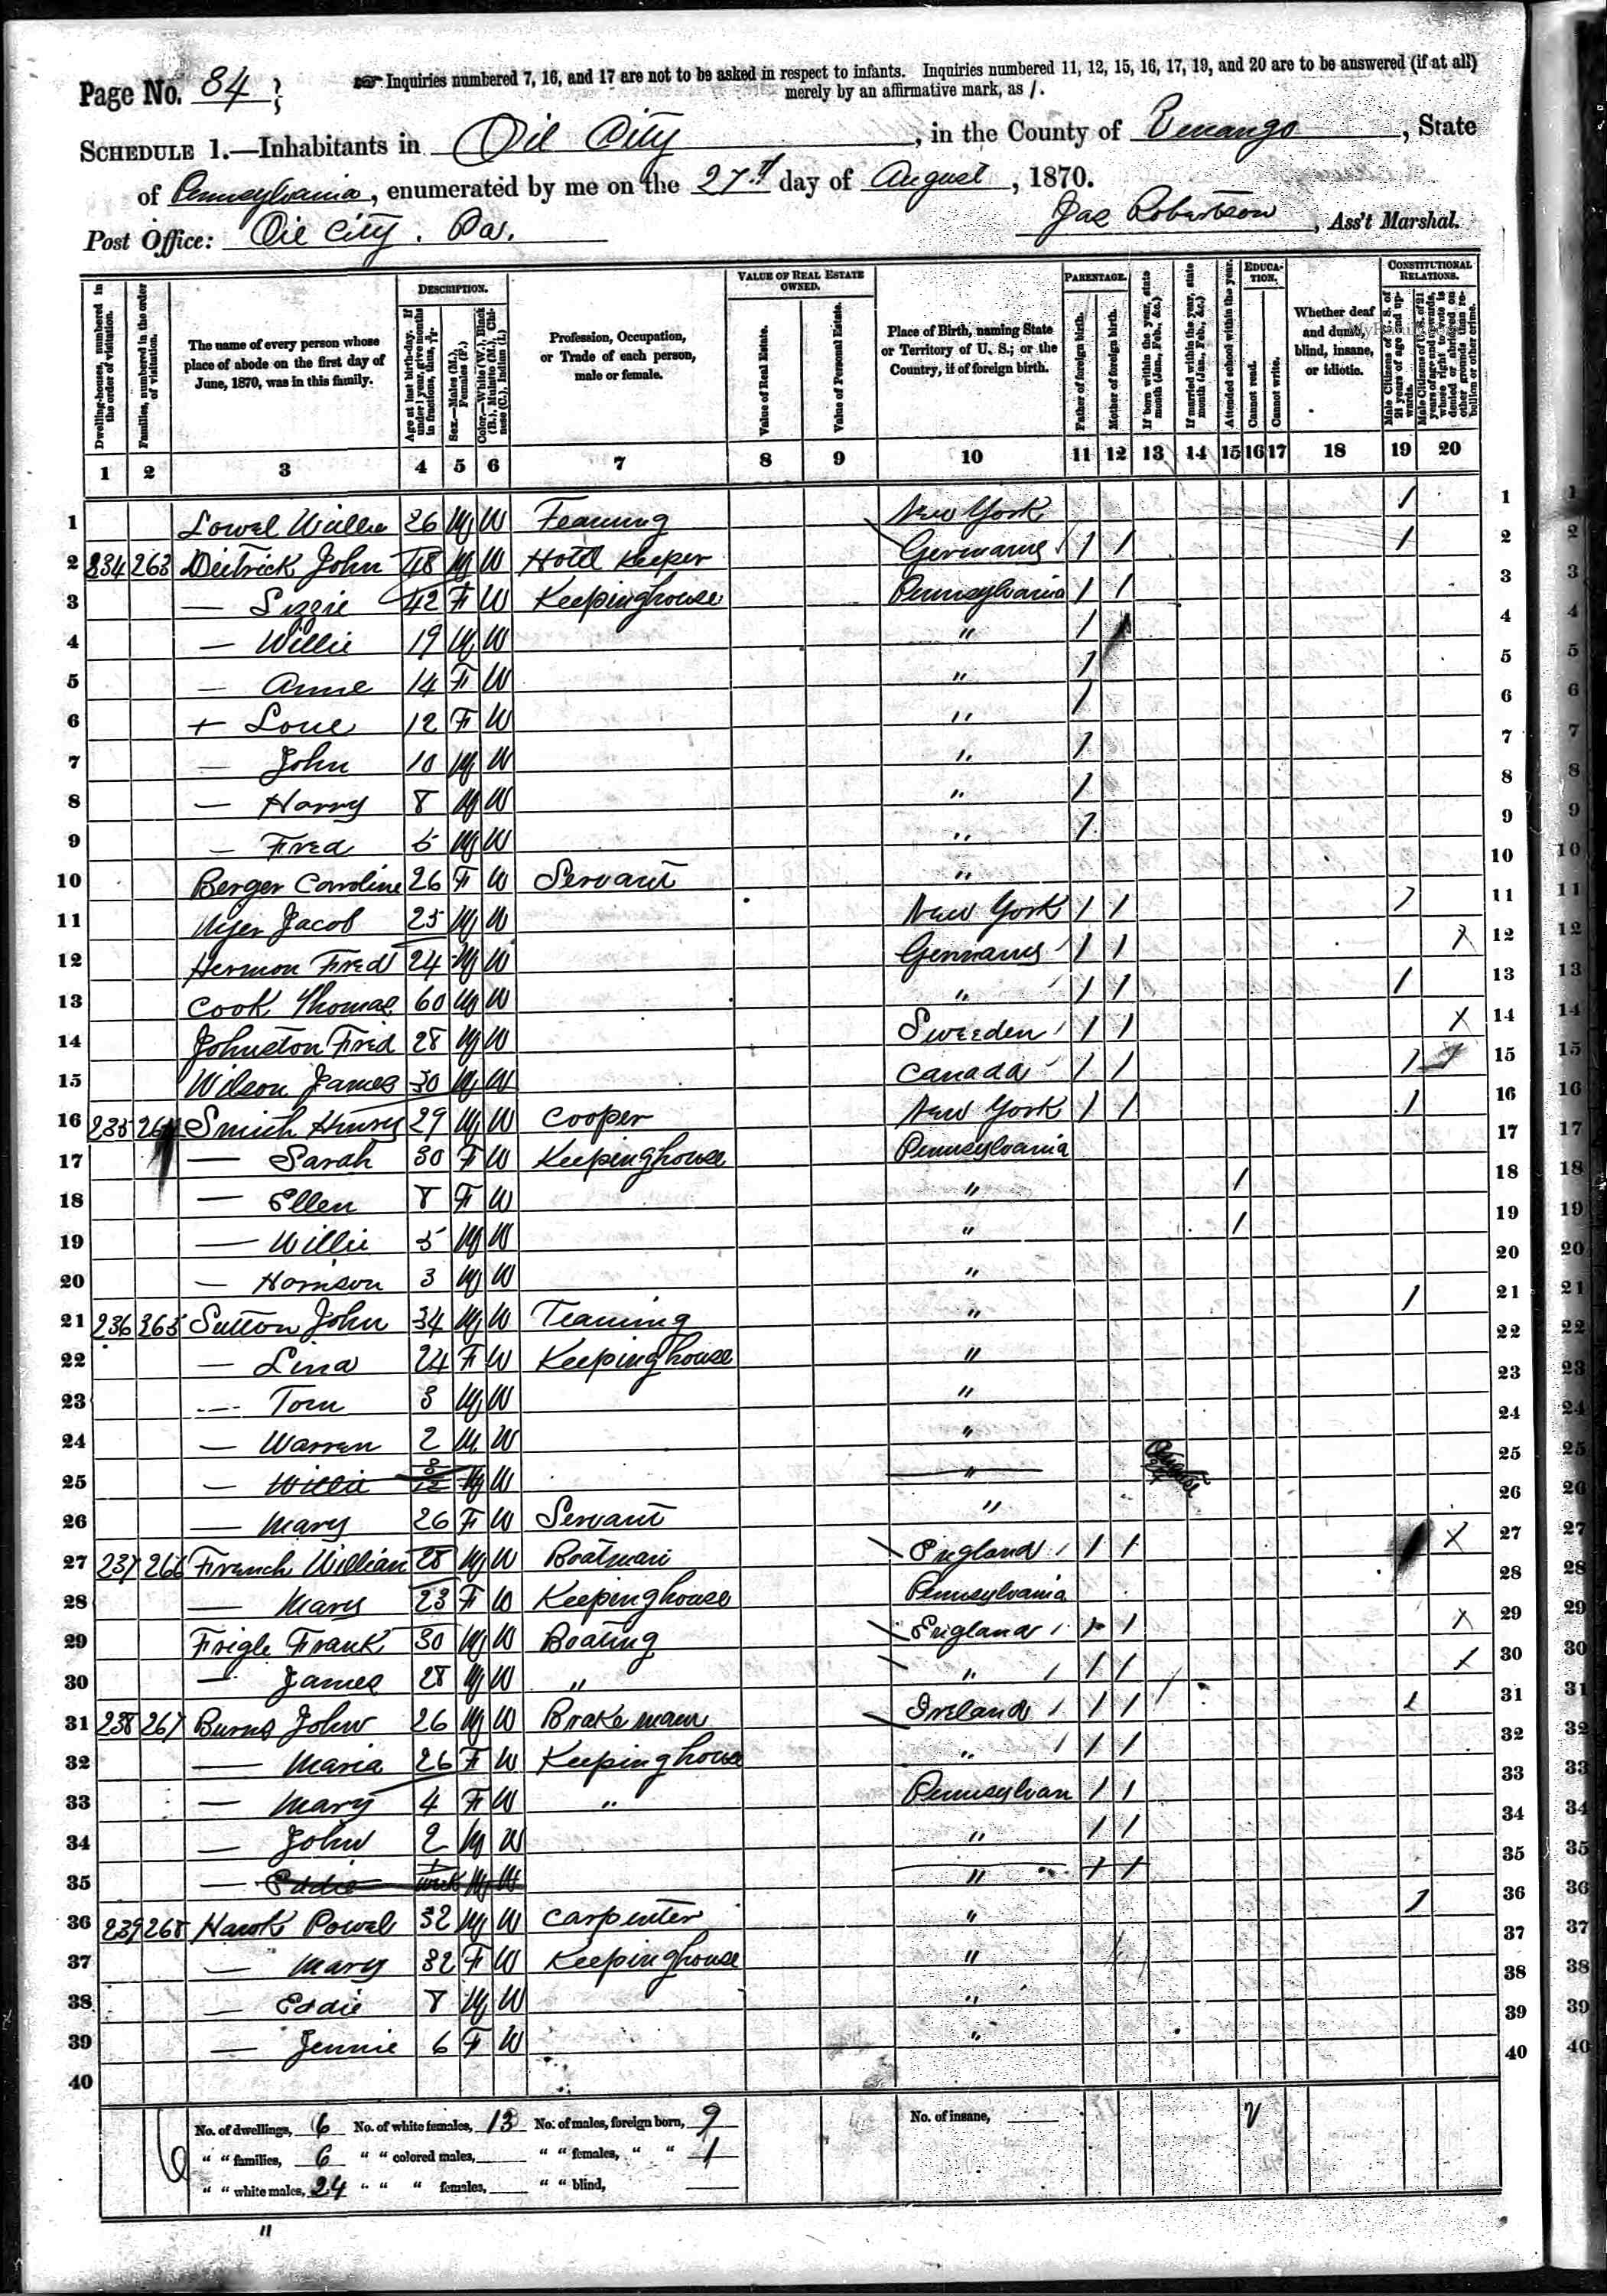 Page No. 84
Inquiries numbered 7, 16, and 17 are not to be asked in respect to infants. Inquiries numbered 11, 12, 15, 16, 17, 19, and 20 are to be answered (if at all)
merely by an affirmative mark, as /.
SCHEDULE 1.—Inhabitants in Oil City, in the County of Venango, State
of Pennsylvania, enumerated by me on the 27th day of August, 1870.
Post Office: Oil City. Pa. Jas Robertson, Ass't Marshal.
Dwelling-houses, numbered in the order of visitation.
Families, numbered in the order of visitation.
The name of every person whose place of abode on the first day of June, 1870, was in this family.
DESCRIPTION.
Age at last birth-day. If under 1 year, give months in fractions, thus, 3/12.
Sex.—Males (M.), Females (F.)
Color.—White (W.), Black (B.), Mulatto (M.), Chinese (C.), Indian (I.)
Profession, Occupation, or Trade of each person, male or female.
VALUE OF REAL ESTATE OWNED.
Value of Real Estate.
Value of Personal Estate.
Place of Birth, naming State or Territory of U. S.; or the Country, if of foreign birth.
PARENTAGE.
Father of foreign birth.
Mother of foreign birth.
If born within the year, state month (Jan., Feb., &c.)
If married within the year, state month (Jan., Feb., &c.)
Attended school within the year.
EDUCATION.
Cannot read.
Cannot write.
Whether deaf and dumb, blind, insane, or idiotic.
CONSTITUTIONAL RELATIONS.
Male Citizens of U. S. of 21 years of age and upwards.
Male Citizens of U. S. of 21 years of age and upwards, whose right to vote is denied or abridged on other grounds than rebellion or other crime.
1 2 3 4 5 6 7 8 9 10 11 12 13 14 15 16 17 18 19 20
1 Lowel Willie 26 M W Teaming New York / 1
2 234 263 Deitrick John 48 M W Hotel Keeper Germany / / / 2
3 — Lizzie 42 F W Keepinghouse Pennsylvania / / 3
4 — Willie 19 M W " / 4
5 — Anne 14 F W " / 5
6 + Loue 12 F W " / 6
7 — John 10 M W " / 7
8 — Harry 8 M W " / 8
9 — Fred 5 M W " / 9
10 Berger Caroline 26 F W Servant " 10
11 Myer Jacob 25 M W New York / / / 11
12 Hermon Fred 24 M W Germany / / X 12
13 Cook Thomas 60 M W " / / / 13
14 Johnston Fred 28 M W Sweeden / / X 14
15 Wilson James 30 M W Canada / / / 15
16 235 264 Smith Henry 29 M W Cooper New York / / / 16
17 — Sarah 30 F W Keepinghouse Pennsylvania 17
18 — Ellen 8 F W " / 18
19 — Willie 5 M W " / 19
20 — Harrison 3 M W " 20
21 236 265 Sutton John 34 M W Teaming " / 21
22 — Lina 24 F W Keepinghouse " 22
23 — Tom 3 M W " 23
24 — Warren 2 M W " 24
25 — Willie M W " 25
26 — Mary 26 F W Servant " 26
27 237 266 French William 28 M W Boatman England / / X 27
28 — Mary 23 F W Keepinghouse Pennsylvania 28
29 Frigle Frank 30 M W Boating England / / X 29
30 — James 28 M W " " / / X 30
31 238 267 Burns John 26 M W Brakeman Ireland / / / 31
32 — Maria 26 F W Keepinghouse " / / 32
33 — Mary 4 F W " Pennsylvan / / 33
34 — John 2 M W " / / 34
35 — Eddie 1 week M W " / / 35
36 239 268 Hawk Powel 32 M W Carpenter " / 36
37 — Mary 32 F W Keepinghouse " 37
38 — Eddie 8 M W " 38
39 — Jennie 6 F W " 39
40 40
No. of dwellings, 6 No. of white females, 13 No. of males, foreign born, 9 No. of insane,
" " families, 6 " " colored males, " " females, " " 1
" " white males, 24 " " " females, " " blind,